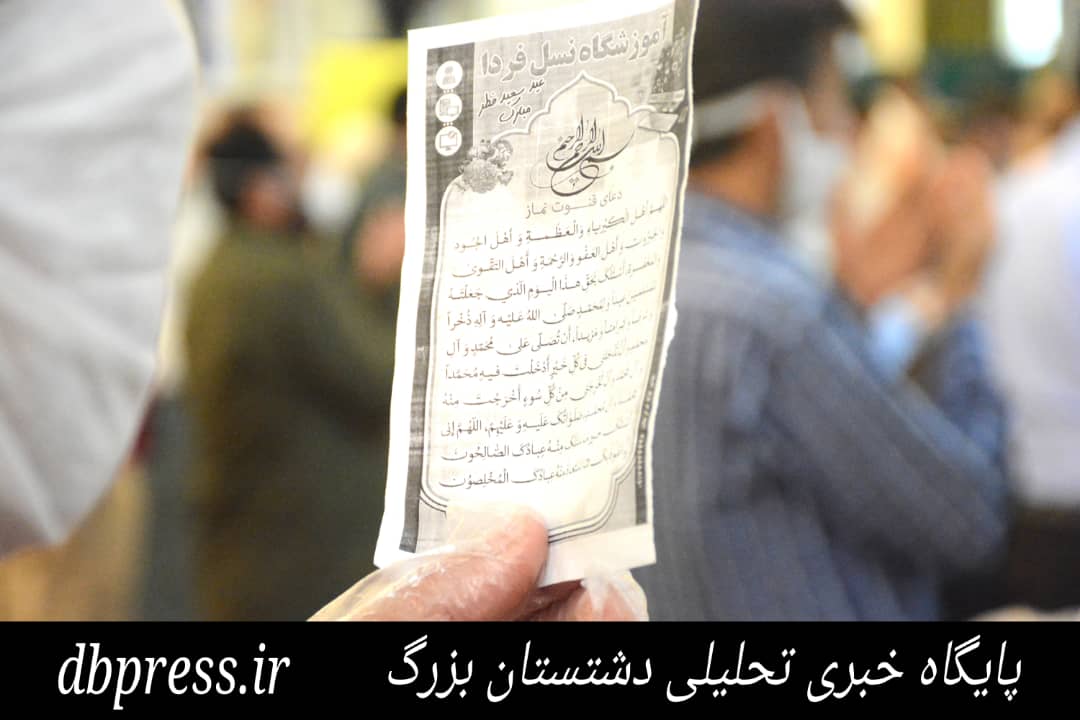 آموزشگاه نسل فردا
عید سعید فطر
مبارک
بسم الله الرحمن الرحیم
دعای قنوت نماز
اللهم أهل الكبرياءِ وَالْعَظَمَةِ وَ أَهْلَ الْجُودِ
وَ أَهْلَ العَفْوِ وَالرَّحْمَةِ وَ أَهْلَ التَّقْوى
أَسْئَلُكَ بِحَقِّ هذَا الْيَومِ الَّذي جَعَلْتَهُ
صَلَّى اللهُ عَلَيْهِ وَ آلِهِ ذُخْراً
وَ مَزِيداً، أَنْ تُصَلِّى عَلى مُحَمَّدٍ وَ آلِ
في كُلِّ خَيْرٍ أَدْخَلْتَ فيهِ مُحَمَّداً
مِنْ كُلِّ سُوءٍ أَخْرَجْتَ مِنْهُ
صَلَواتُكَ عَلَيْهِ وَ عَلَيْهِمْ، اللّهُمَّ إِنّى
مِنْهُ عِبادُكَ الصّالِحُونَ
عِبادُكَ الْمُخْلِصُونَ
dbpress.ir پایگاه خبری تحلیلی دشتستان بزرگ